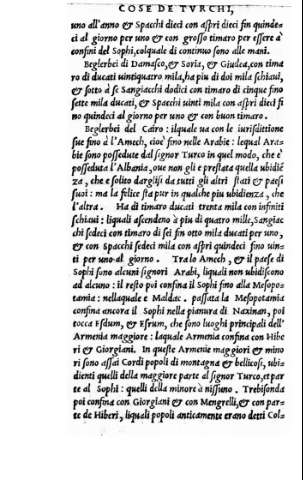 COSE DE TVRCHI,
uno all'anno & Spacchi dieci con aspri dieci fin quinde-
ci al giorno per uno & con grosso timaro per essere à
confini del Sophi, colquale di continuo sono alle mani.
Beglerbei di Damasco, & Soria, & Giudea, con tima
ro di ducati uintiquatro mila, ha piu di doi mila schiaui,
& sotto à se Sangiacchi dodici con timaro di cinque fino
sette mila ducati, & Spacchi uinti mila con aspri dieci fi
no quindeci al giorno per uno & con buon timaro.
Beglerbei del Cairo: ilquale ua con le iurisdittione
sue fino à l'Amech, cioè fino nelle Arabie: lequal Ara-
bie sono possedute dal signor Turco in quel modo, che è
posseduta l'Albania, oue non gli è prestata quella ubidiē
za, che è solito dargisi da tutti gli altri stati & paesi
suoi: ma la felice sta pur in qualche piu ubidienza, che
l'altra. Ha di timaro ducati trenta mila con infiniti
schiaui: liquali ascendeno à piu di quatro mille, Sangiac
chi sedeci con timaro di sei fin otto mila ducati per uno,
& con Spacchi sedeci mila con aspri quindeci fino uin-
ti per uno al giorno. Tra lo Amech, & il paese di
Sophi sono alcuni signori Arabi, liquali non ubidiscono
ad alcuno: il resto poi confina il Sophi fino alla Mesopo-
tamia: nellaquale e Maldac. passata la Mesopotamia
confina ancora il Sophi nella pianura di Naxinan, poi
tocca Esdum, & Esrum, che sono luoghi principali dell'
Armenia maggiore: laquale Armenia confina con Hibe
ri & Giorgiani. In queste Armenie maggiori & mino
ri sono assai Cordi popoli di montagna & bellicosi, ubi-
dienti quelli della maggiore parte al signor Turco, et par
te al Sophi: quelli della minore à nissuno. Trebisonda
poi confina con Giorgiani & con Mengrelli, & con par-
te de Hiberi, liquali popoli anticamente erano detti Col-